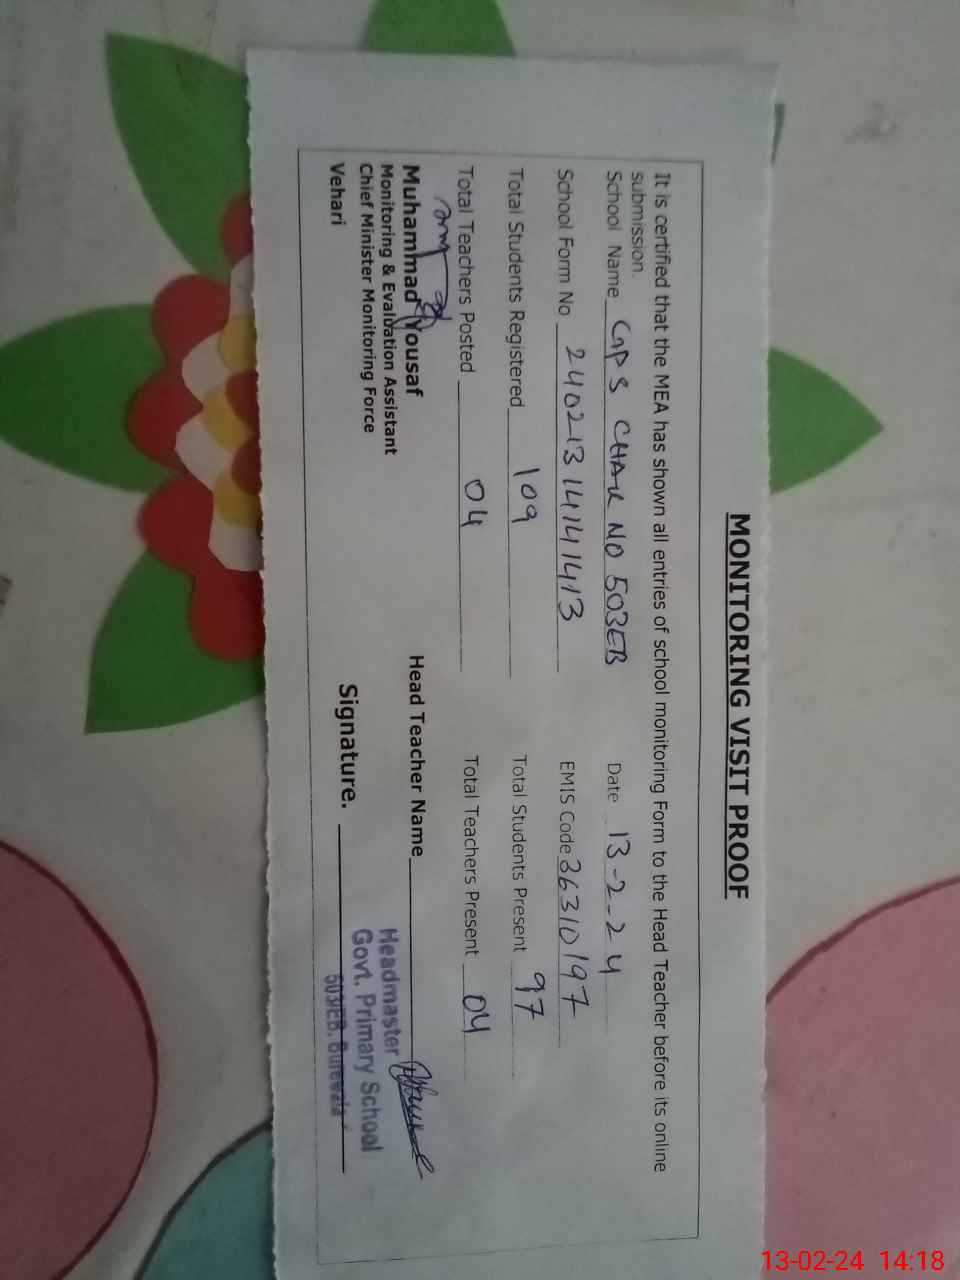 MONITORING VISIT PROOF
It is certified that the MEA has shown all entries of school monitoring Form to the Head Teacher before its online
submission.
School Name GPS CHAK NO 503EB Date 13-2-24
School Form No 24021314141413 EMIS Code 36310197
Total Students Registered 109 Total Students Present 97
Total Teachers Posted 04 Total Teachers Present 04
Muhammad Yousaf Head Teacher Name
Monitoring & Evaluation Assistant
Chief Minister Monitoring Force
Vehari
Signature.
Headmaster
Govt. Primary School
503/EB. Burewala
13-02-24 14:18